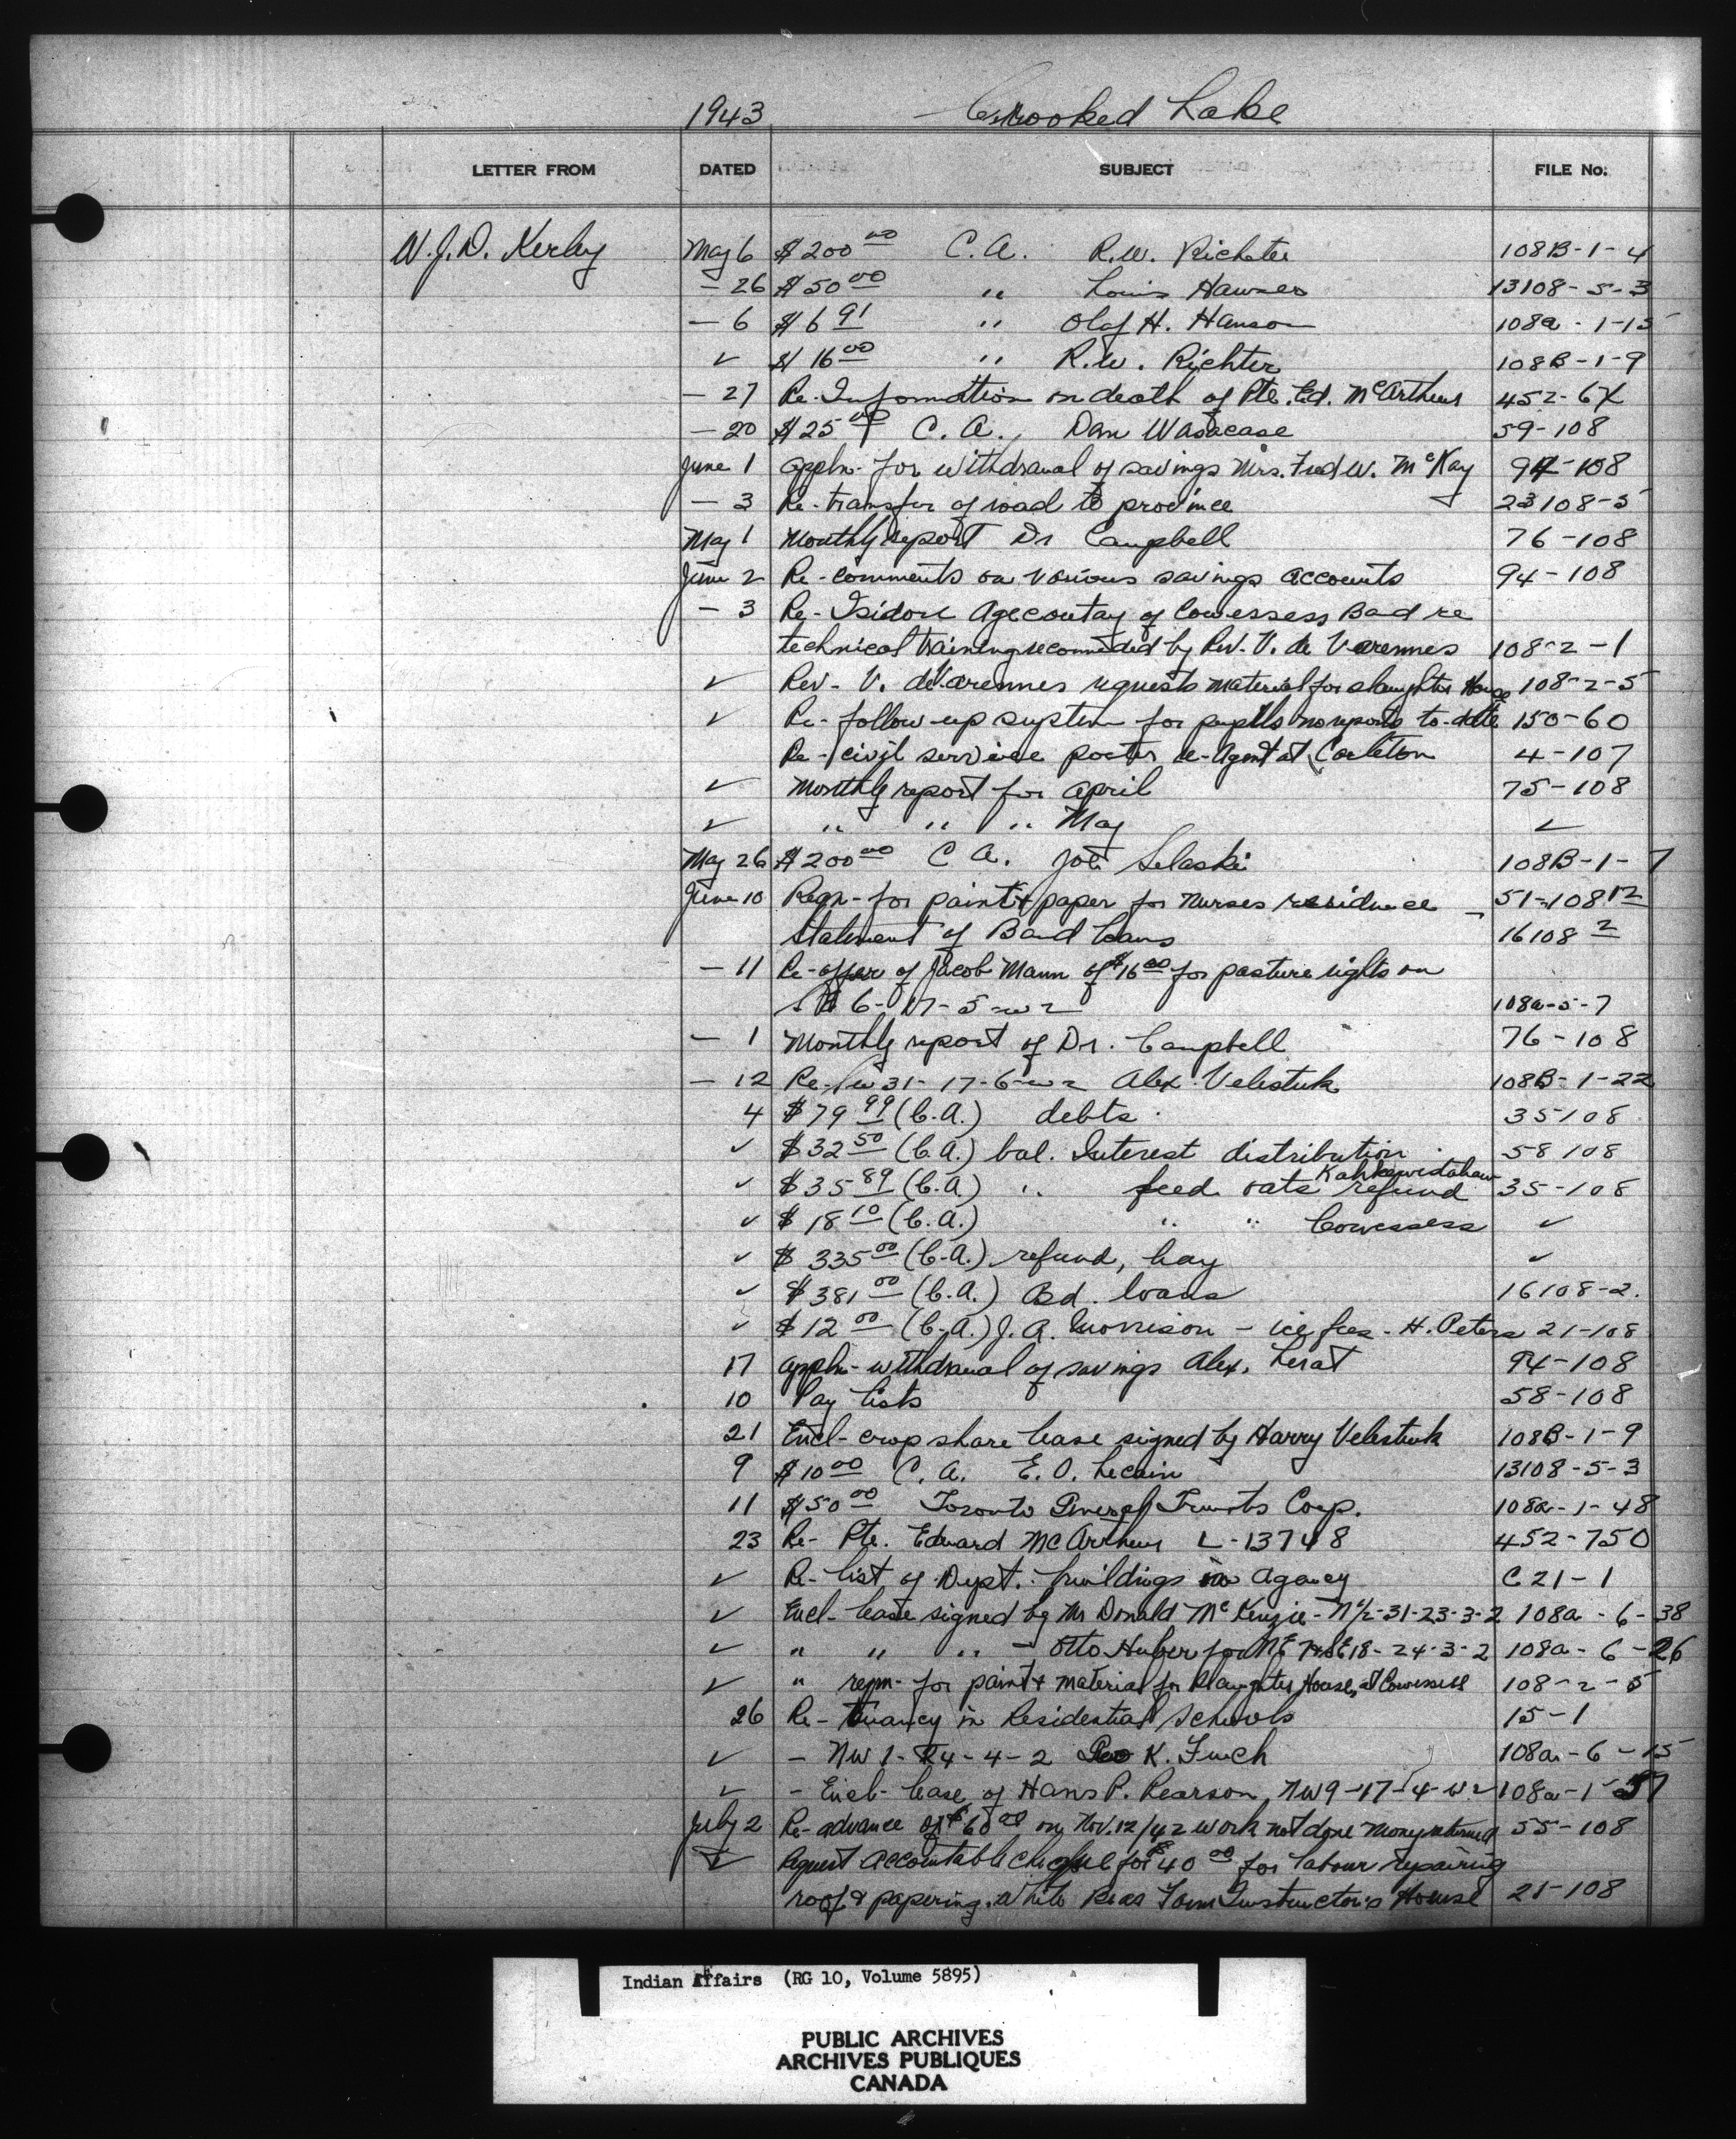 1943 Crooked Lake
LETTER FROM DATED SUBJECT FILE No.
W.J.D. Kerley May 6 $200 00 C.A. R.W. Richter 108B-1-4
— 26 $50 00 " Louis Hawnes 13108-5-3
— 6 $6 91 " Olaf H. Hanson 108a-1-15
✓ $16 00 " R.W. Richter 108B-1-9
— 27 Re-Information on death of Pte. Ed. McArthur 452-6X
— 20 $25 00 C.A., Dan Wasacase 59-108
June 1 Appln- for withdrawal of savings Mrs. Fred W. McKay 94-108
— 3 Re-transfer of road to province 23108-5
May 1 Monthly report Dr Campbell 76-108
June 2 Re-comments on various savings accounts 94-108
— 3 Re-Isidore Agecoutay of Cowessess Band re
technical training recommended by Rev. V. de Varennes 108-2-1
✓ Rev- V. de Varennes requests material for slaughter House 108-2-5
✓ Re-follow up system for pupils no reports to-date 150-60
Re-civil service poster re-Agent at Carleton 4-107
✓ Monthly report for April 75-108
✓ " " " May ✓
May 26 $200 00 C A. Joe Selaski 108B-1-7
June 10 Reqn-for paint & paper for nurses residence — 51-108 12
Statement of Band Loans 16108 2
— 11 Re-offer of Jacob Mann of $16 00 for pasture rights on
6-17-5-w2 108a-5-7
— 1 Monthly report of Dr. Campbell 76-108
— 12 Re- 31-17-6-w2 Alex Velestuk 108B-1-22
4 $79 99 (C.A.) debts 35108
✓ $32 50 (C.A.) bal. Interest distribution 58108
✓ $35 89 (C.A.) " feed oats Kahkewistahaw refund 35-108
✓ $18 10 (C.A.) " " Cowessess ✓
✓ $335 00 (C.A.) refund, hay ✓
✓ $381 00 (C.A.) Bd. loans 16108-2.
✓ $12 00 (C.A.) J.A. Morrison - ice fees - H. Peters 21-108
17 appln-withdrawal of savings Alex. Lerat 94-108
10 Pay lists 58-108
21 Encl-crop share lease signed by Harry Velestuk 108B-1-9
9 $10 00 C.A. E.O. Lecain 13108-5-3
11 $50 00 Toronto General Trusts Corp. 108a-1-48
23 Re- Pte. Edward McArthur L-13748 452-750
✓ Re-list of Dept. buildings in agency C21-1
✓ Encl-lease signed by Mr Donald McKenzie-N½-31-23-3-2 108a-6-38
✓ " " " — Otto Huber for NE & SE 18-24-3-2 108a-6-26
✓ " reqn- for paint & material for Slaughter House, at Cowessess 108-2-5
26 Re-Truancy in Residential Schools 15-1
✓ - NW 1-24-4-2 Geo K. Finch 108a-6-15
✓ - Encl-lease of Hans P. Pearson, NW9-17-4-W2 108a-1-57
July 2 Re-advance of $60 00 on Nov. 12/42 work not done money returned 55-108
✓ Request accountable cheque for $40 00 for labour repairing
roof & papering, White Bear Farm Instructor's House 21-108
Indian Affairs (RG 10, Volume 5895)
PUBLIC ARCHIVES
ARCHIVES PUBLIQUES
CANADA